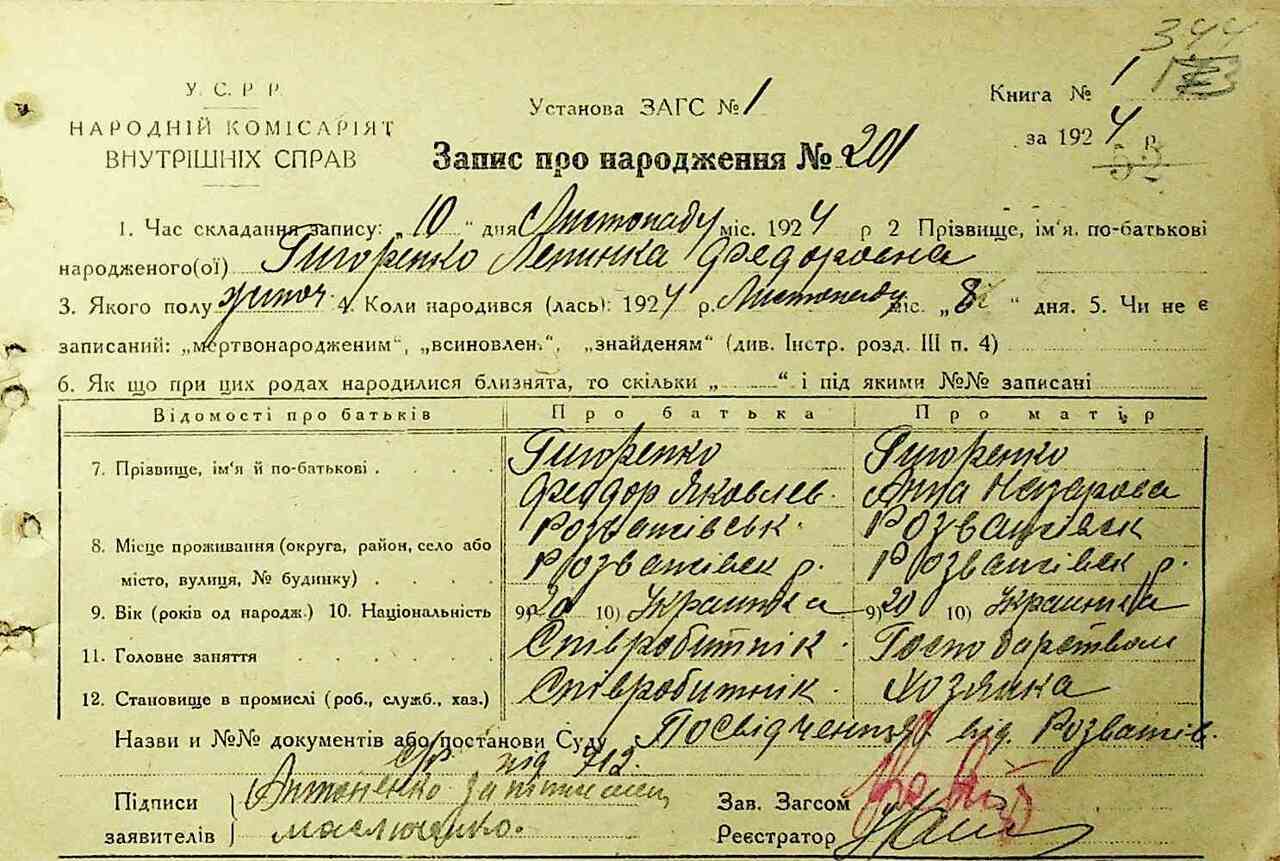 344
У. С. Р Р.
НАРОДНІЙ КОМІСАРІЯТ
ВНУТРІШНІХ СПРАВ
Установа ЗАГС № 1
Книга № 1
за 1924 р
Запис про народження № 201
1. Час складання запису: „10“ дня Листопаду міс. 1924 р 2 Прізвище, ім'я, по-батькові
народженого(ої) Федоровна
3. Якого полу жіноч. 4. Коли народився (лась): 1924 р. Листопаду міс. „8“ дня. 5. Чи не є
записаний: „мертвонародженим“, „всиновлен.“, „знайденям“ (див. Інстр. розд. III п. 4)
6. Як що при цих родах народилися близнята, то скільки „ “ і під якими №№ записані
Відомості про батьків Про батька Про матір
7. Прізвище, ім'я й по-батькові
Феодор Яковлев. Анна Назарова
8. Місце проживання (округа, район, село або
місто, вулиця, № будинку)
9. Вік (років од народж.) 10. Національність 9) 20 10) Украинка 9) 20 10) Украинка
11. Головне заняття Співробитнік Господарством
12. Становище в промислі (роб., служб., хаз.) Співробитнік. Хозяйка
Назви и №№ документів або постанови Суду Посвідчення від
с/р під 712.
Підписи Антоненко
заявителів Маслюченко.
Зав. Загсом
Реєстратор